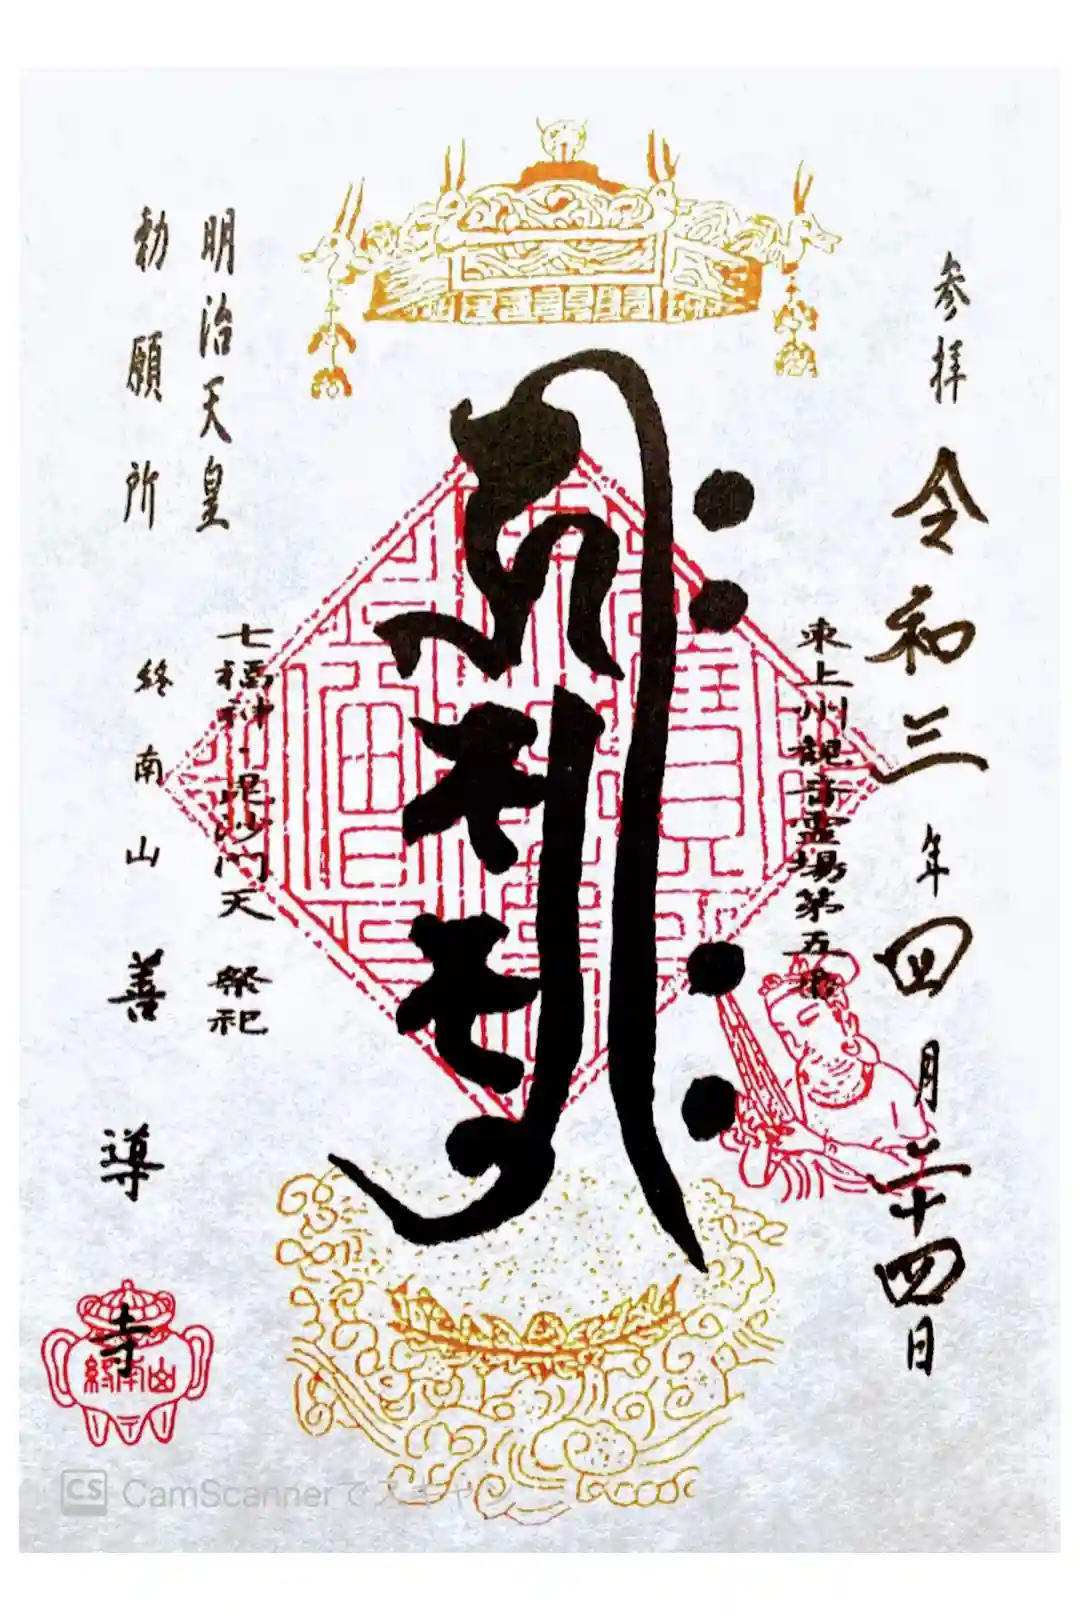 参拝 令和三年四月二十四日
東上州観音霊場第五番
明治天皇
勅願所
七福神・毘沙門天 祭祀
終南山 善導寺
終南山
CS CamScannerでスキャン